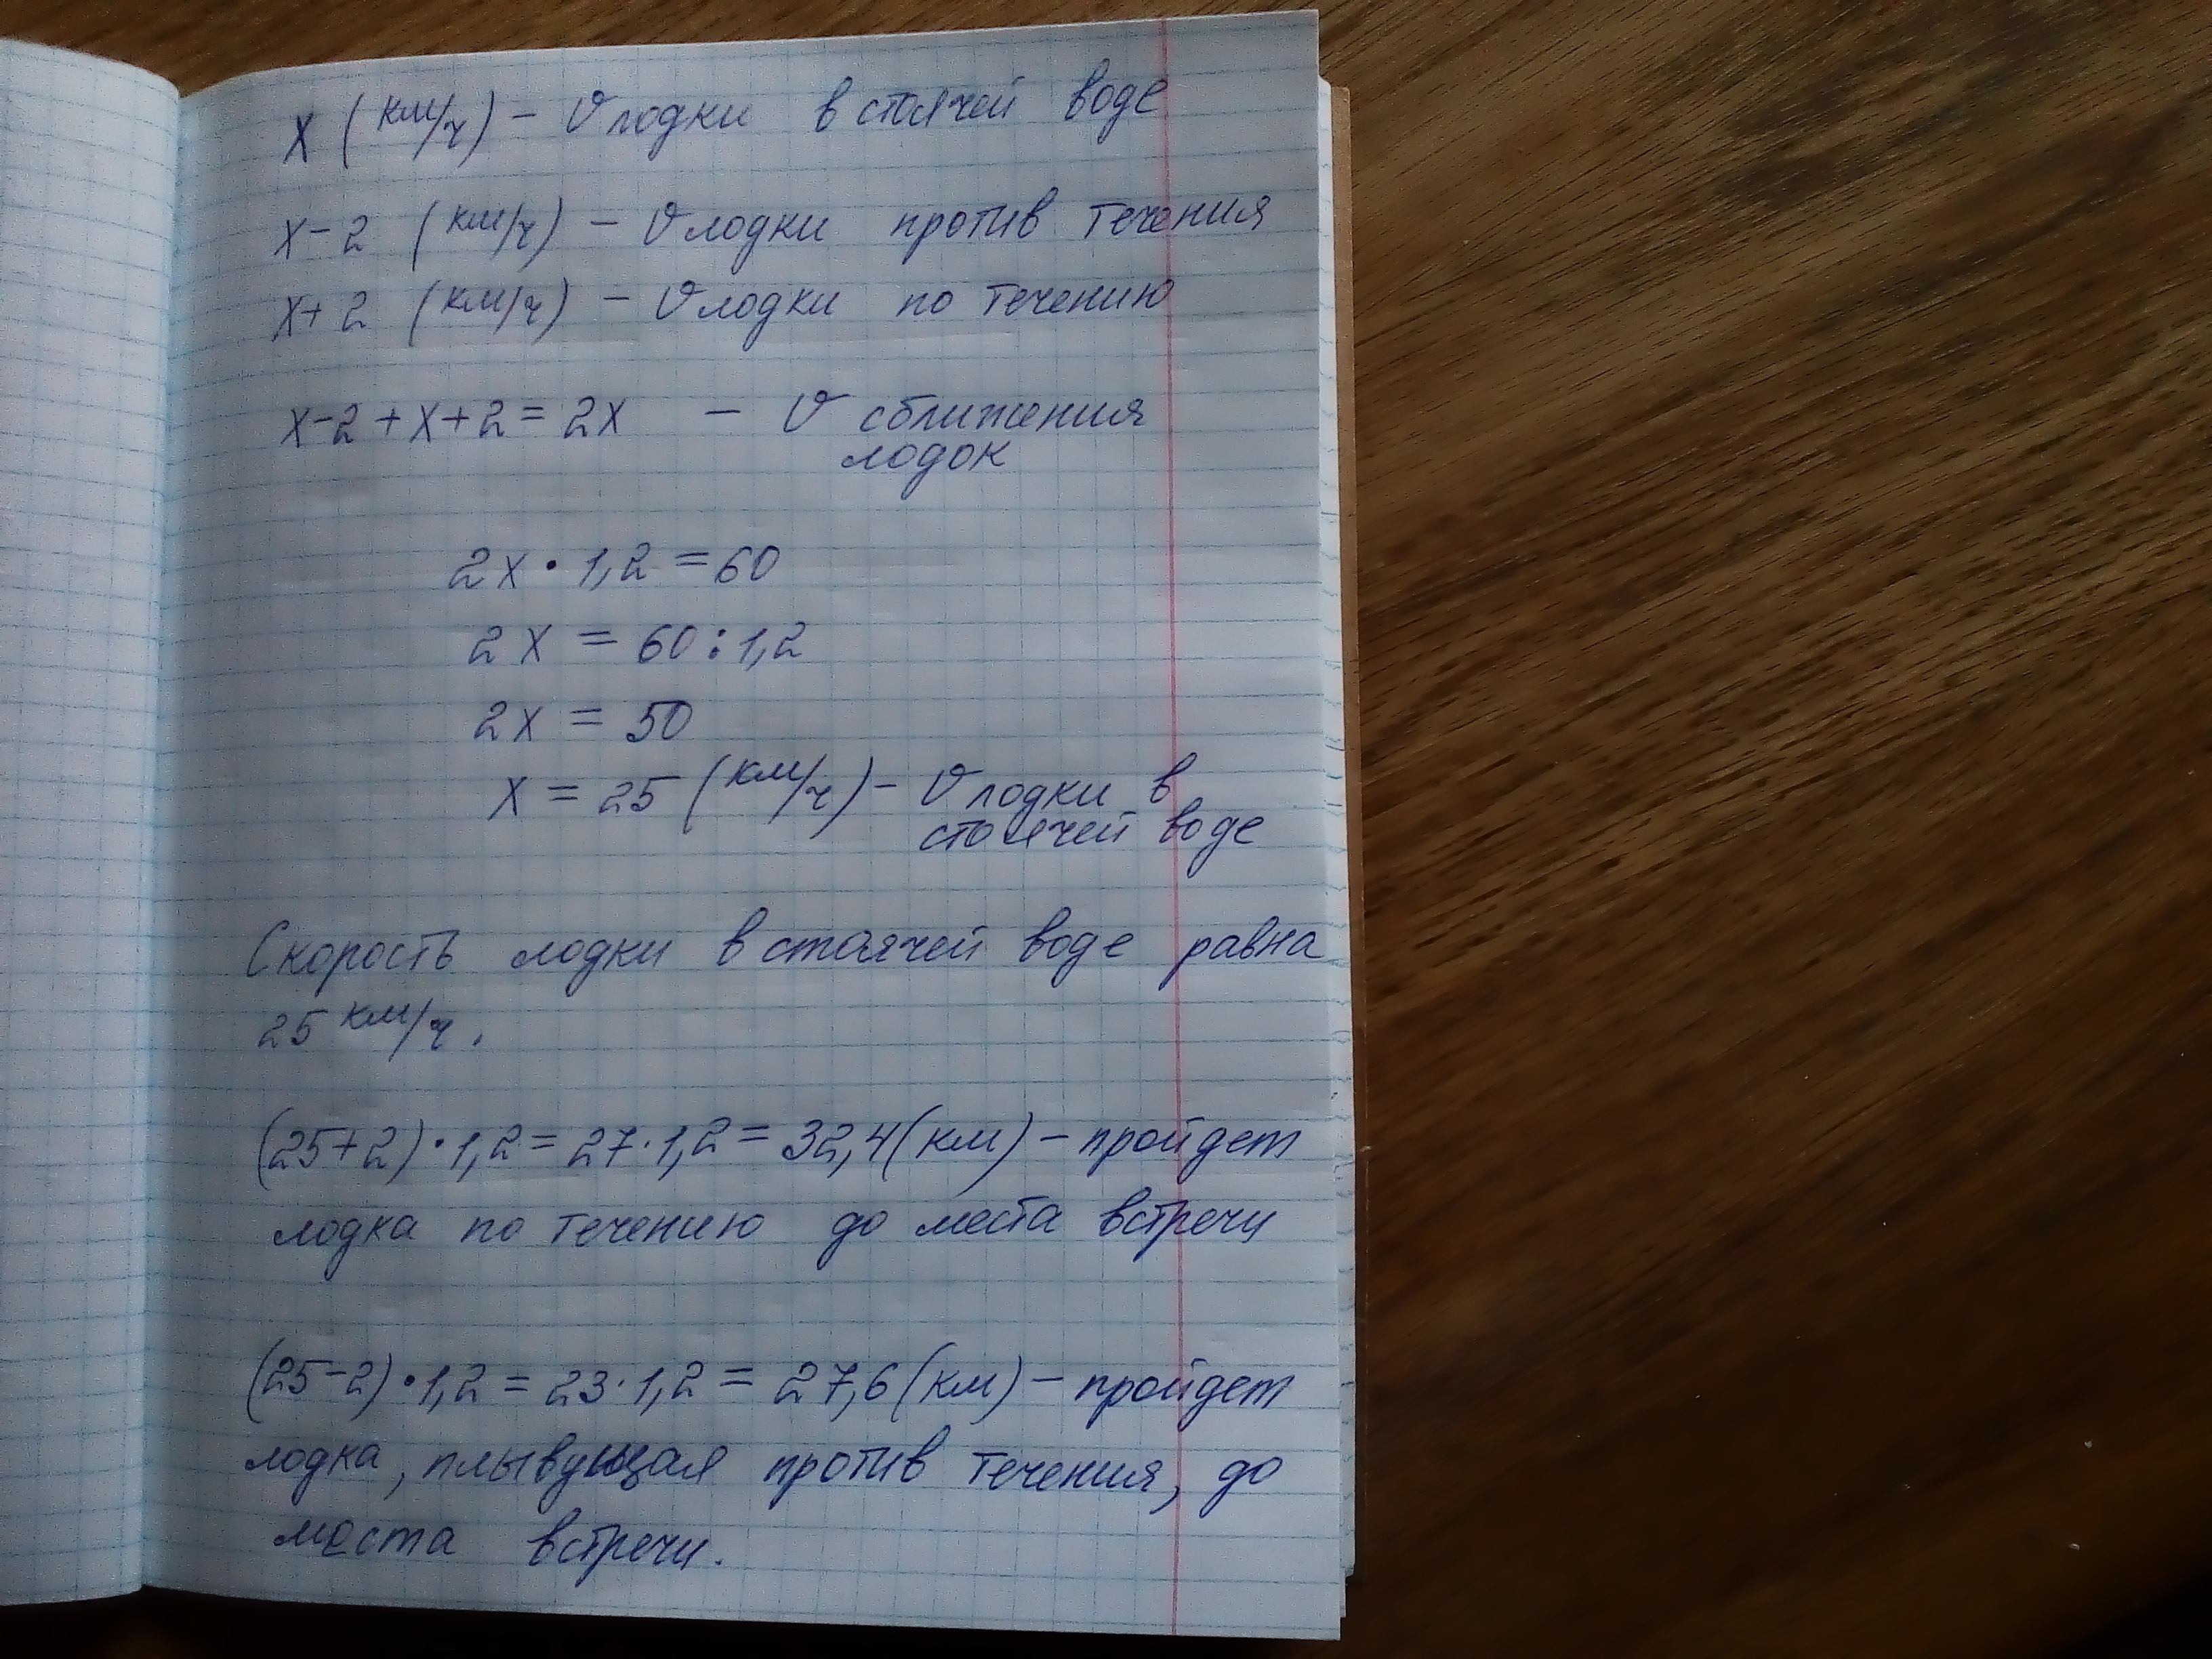 x (км/ч) – v лодки в стоячей воде
x-2 (км/ч) – v лодки против течения
x+2 (км/ч) – v лодки по течению
x-2+x+2=2x – v сближения
лодок
2x·1,2=60
2x = 60:1,2
2x = 50
x = 25 (км/ч) – v лодки в
стоячей воде
Скорость лодки в стоячей воде равна
25 км/ч.
(25+2)·1,2=27·1,2=32,4(км) – пройдет
лодка по течению до места встречи
(25-2)·1,2=23·1,2=27,6(км) – пройдет
лодка, плывующая против течения, до
места встречи.